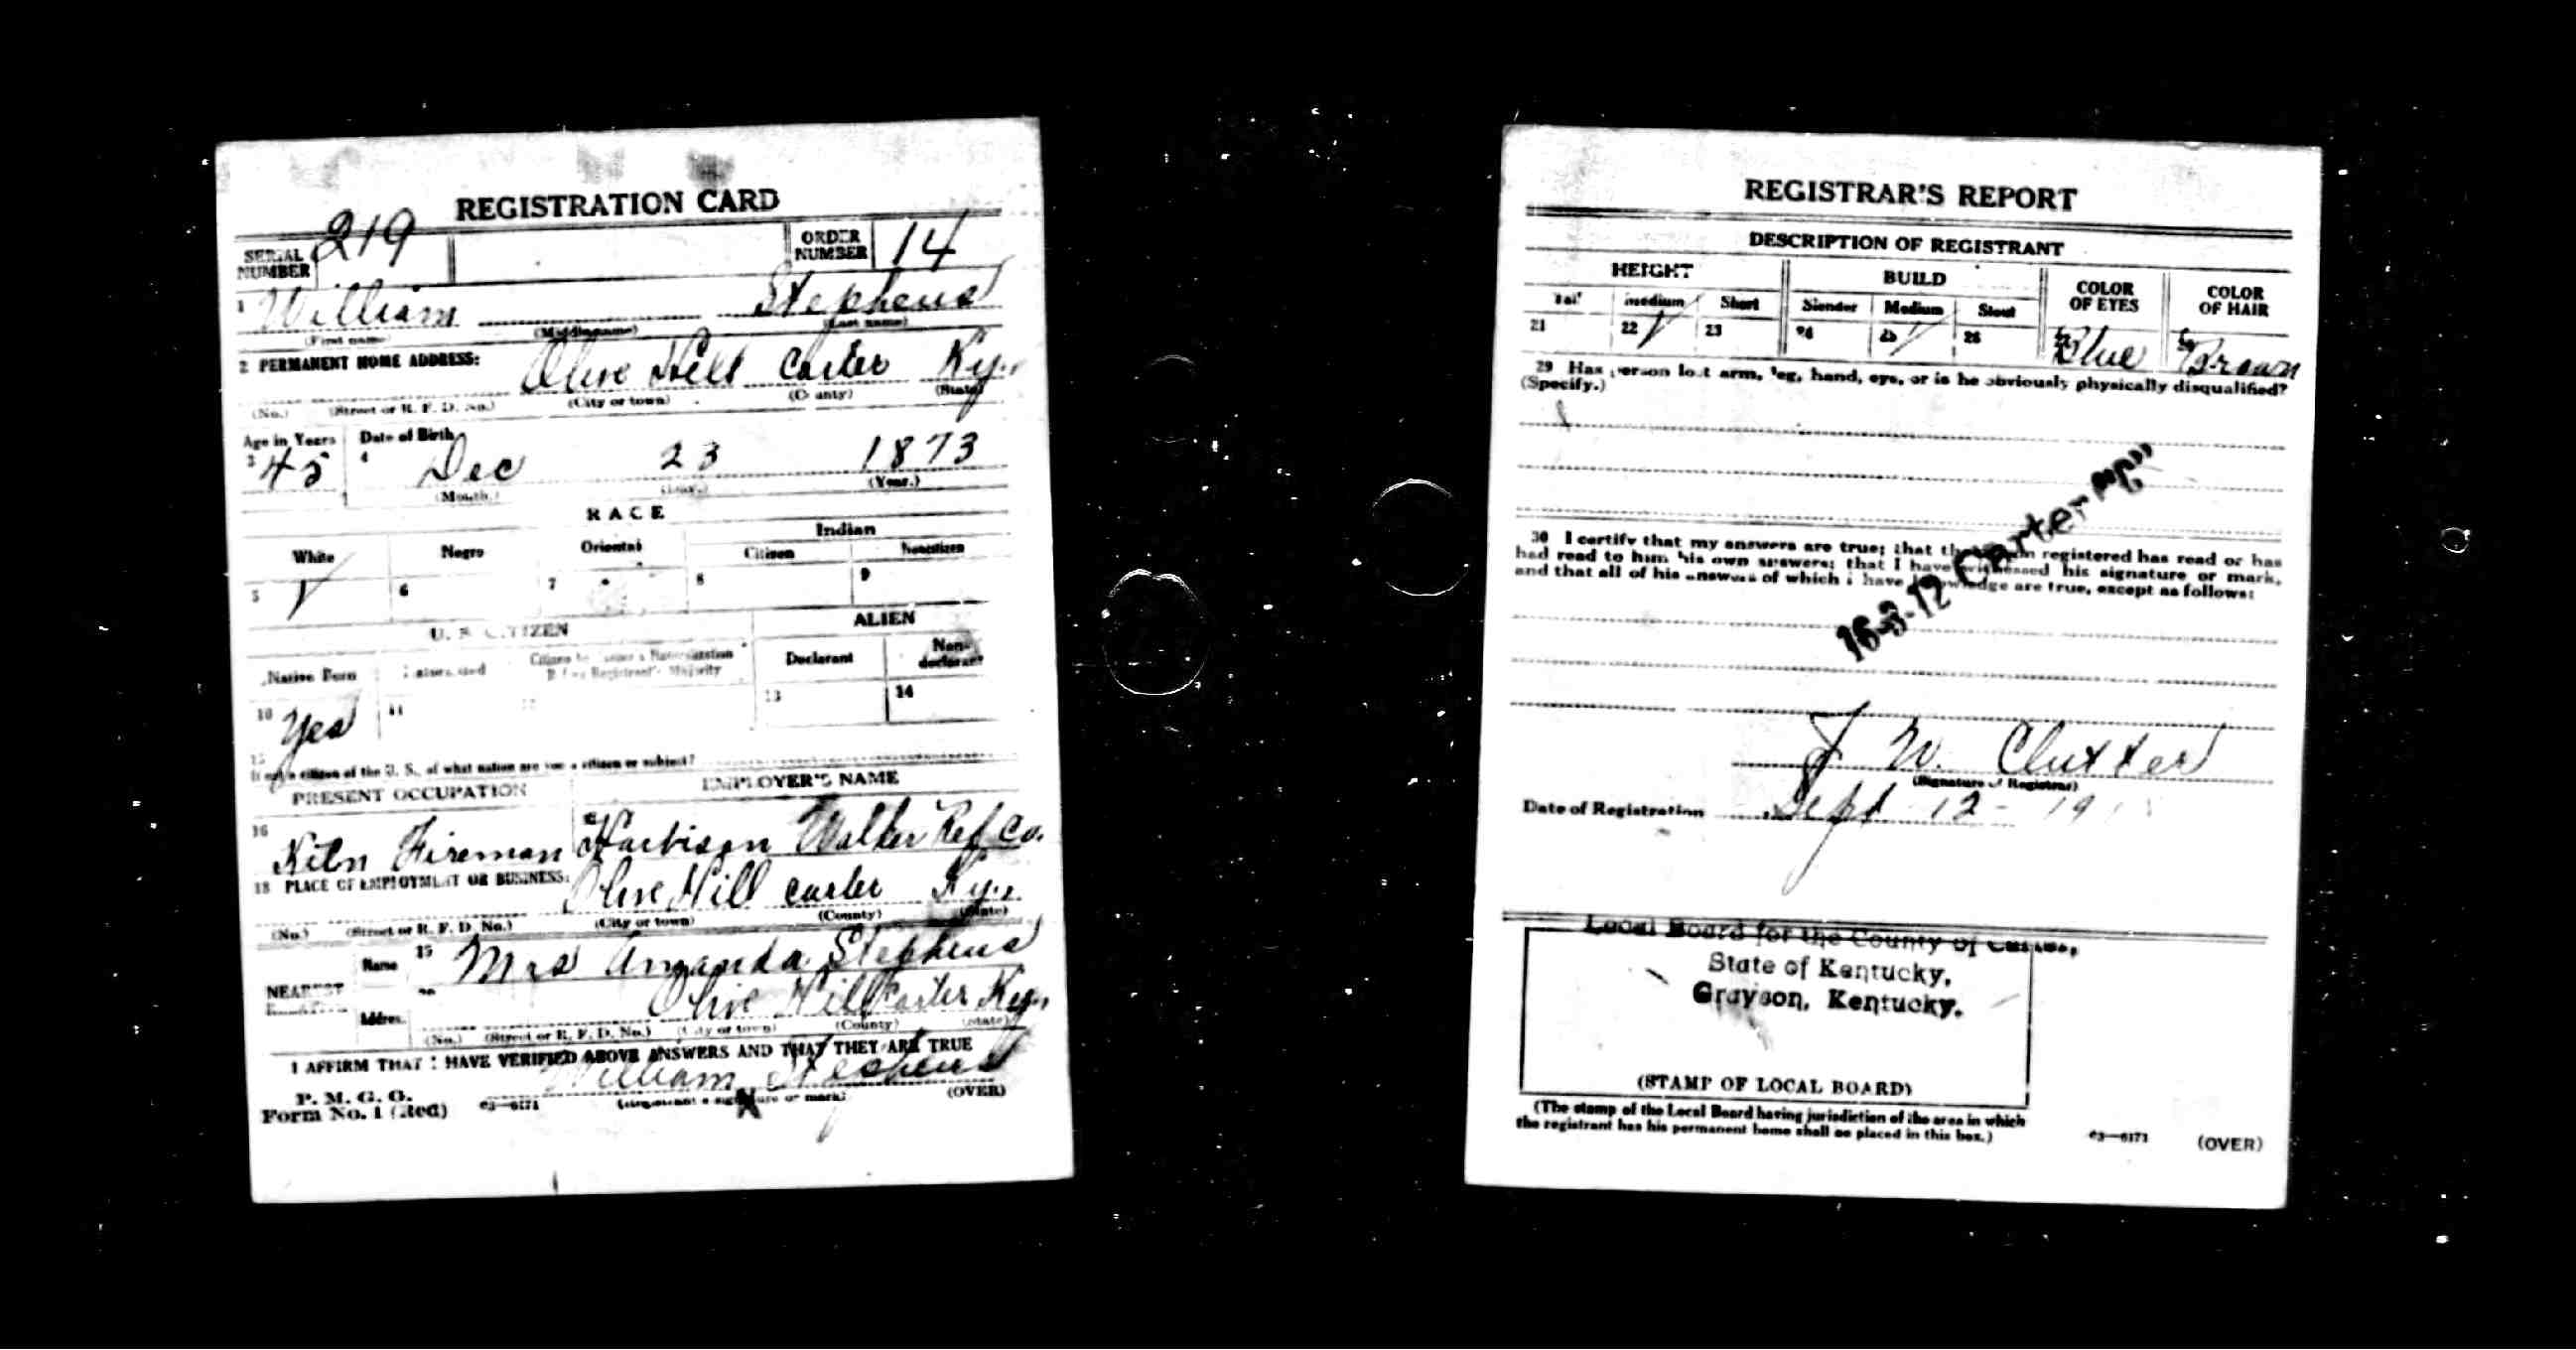 REGISTRATION CARD
SERIAL NUMBER 219 ORDER NUMBER 14
1 William Stephens
(First name) (Middle name) (Last name)
2 PERMANENT HOME ADDRESS: Olive Hill Carter Ky.
(No.) (Street or R. F. D. No.) (City or town) (County) (State)
Age in Years Date of Birth
3 45 4 Dec 23 1873
(Month.) (Day.) (Year.)
RACE
White Negro Oriental Indian
Citizen Noncitizen
5 ✓ 6 7 8 9
U. S. CITIZEN ALIEN
Native Born Naturalized Citizen by Father's Naturalization Before Registrant's Majority Declarant Non-declarant
10 Yes 11 12 13 14
15 If not a citizen of the U. S., of what nation are you a citizen or subject?
PRESENT OCCUPATION EMPLOYER'S NAME
16 Kiln Fireman Harbison Walker Ref Co.
18 PLACE OF EMPLOYMENT OR BUSINESS: Olive Hill Carter Ky.
(No.) (Street or R. F. D. No.) (City or town) (County) (State)
NEAREST Name 15 Mrs Amanda Stephens
Address 20 Olive Hill Carter Ky.
(No.) (Street or R. F. D. No.) (City or town) (County) (State)
I AFFIRM THAT I HAVE VERIFIED ABOVE ANSWERS AND THAT THEY ARE TRUE
P. M. G. O. William Stephens
Form No. 1 (Red) 03—6171 (Registrant's signature or mark) (OVER)
X
REGISTRAR'S REPORT
DESCRIPTION OF REGISTRANT
HEIGHT BUILD COLOR OF EYES COLOR OF HAIR
Tall Medium Short Slender Medium Stout
21 22 ✓ 23 24 25 ✓ 26 Blue Brown
29 Has person lost arm, leg, hand, eye, or is he obviously physically disqualified?
(Specify.)
30 I certify that my answers are true; that the person registered has read or has
had read to him his own answers; that I have witnessed his signature or mark,
and that all of his answers of which I have knowledge are true, except as follows:
16-3-12 Carter "C"
J W. Clutter
(Signature of Registrar)
Date of Registration Sept 12 - 191
Local Board for the County of Carter,
State of Kentucky,
Grayson, Kentucky.
(STAMP OF LOCAL BOARD)
(The stamp of the Local Board having jurisdiction of the area in which
the registrant has his permanent home shall be placed in this box.)
03—6171 (OVER)